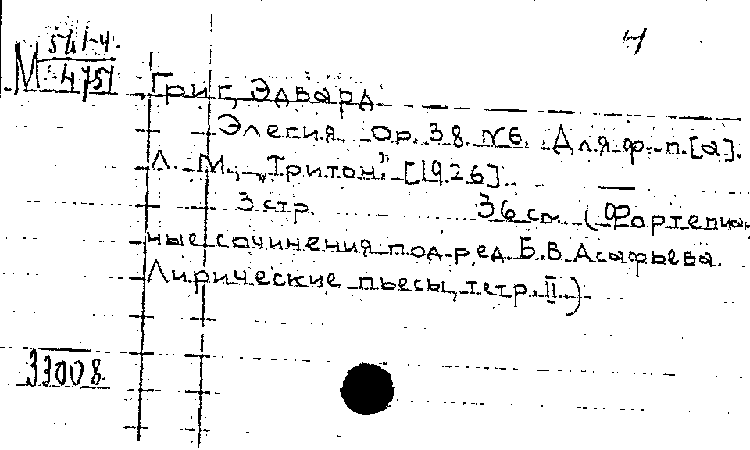 М 51.1-4.
4751
4
Григ, Эдвард.
Элегия. Op. 38 №6. Для ф.-п. [a].
Л.-М., „Тритон." [1926].
3 стр. 36 см. (Фортепиан-
ные сочинения под ред. Б.В.Асафьева.
Лирические пьесы, тетр. II.)
33008.